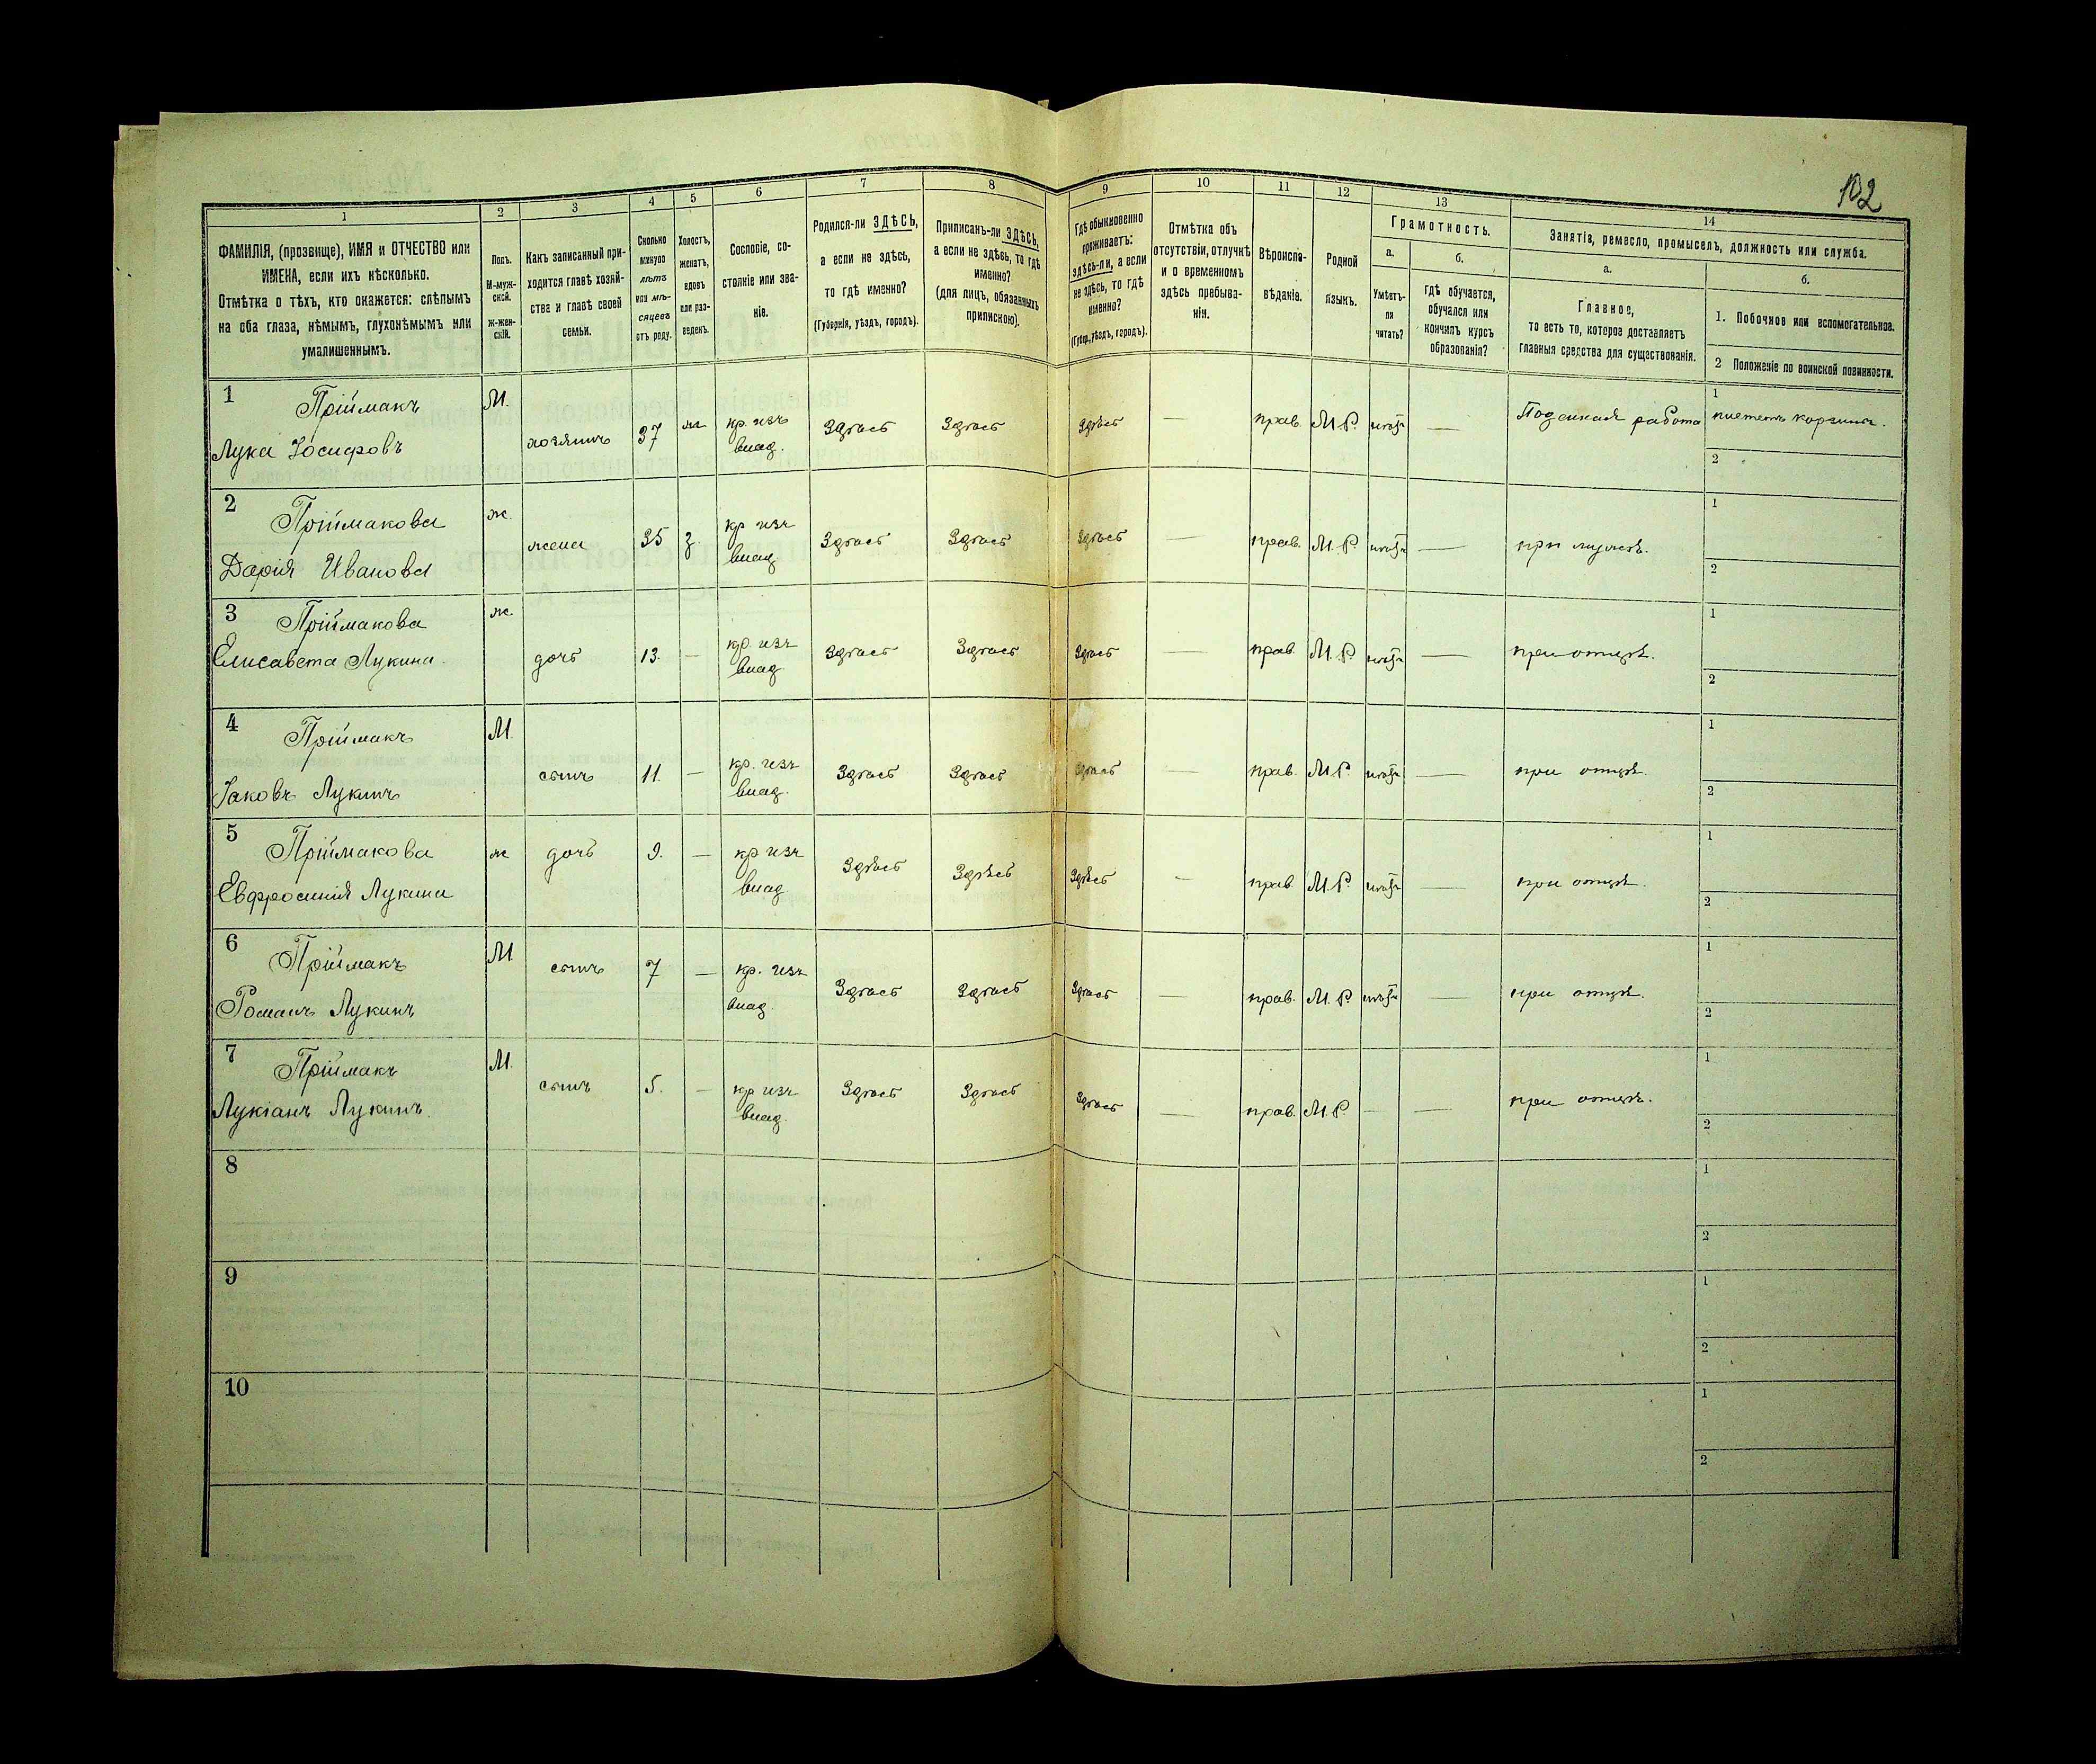 102
1 2 3 4 5 6 7 8 9 10 11 12 13 14
ФАМИЛІЯ, (прозвище), ИМЯ и ОТЧЕСТВО или
ИМЕНА, если ихъ нѣсколько.
Отмѣтка о тѣхъ, кто окажется: слѣпымъ
на оба глаза, нѣмымъ, глухонѣмымъ или
умалишеннымъ.
Полъ.
М-муж-
ской.
ж-жен-
скій.
Какъ записанный при-
ходится главѣ хозяй-
ства и главѣ своей
семьи.
Сколько
минуло
лѣтъ
или мѣ-
сяцевъ
отъ роду.
Холостъ,
женатъ,
вдовъ
или раз-
веденъ.
Сословіе, со-
стояніе или зва-
ніе.
Родился-ли ЗДѢСЬ,
а если не здѣсь,
то гдѣ именно?
(Губернія, уѣздъ, городъ).
Приписанъ-ли ЗДѢСЬ,
а если не здѣсь, то гдѣ
именно?
(для лицъ, обязанныхъ
припискою).
Гдѣ обыкновенно
проживаетъ:
здѣсь-ли, а если
не здѣсь, то гдѣ
именно?
(Губер., уѣздъ, городъ).
Отмѣтка объ
отсутствіи, отлучкѣ
и о временномъ
здѣсь пребыва-
ніи.
Вѣроиспо-
вѣданіе.
Родной
языкъ.
Грамотность.
а.
Умѣетъ-
ли
читать?
б.
гдѣ обучается,
обучался или
кончилъ курсъ
образованія?
Занятія, ремесло, промыселъ, должность или служба.
а.
Главное,
то есть то, которое доставляетъ
главныя средства для существованія.
б.
1. Побочное или вспомогательное.
2 Положеніе по воинской повинности.
1 Пріймакъ М. 1
Лука Іосифовъ хозяинъ 37 ж кр. изъ Здѣсь Здѣсь Здѣсь — прав. М.Р. нѣтъ — Поденная работа плететъ корзины.
влад.
2
2 Пріймакова ж. 1
Дарія Иванова жена 35 з. кр изъ Здѣсь Здѣсь Здѣсь — прав. М.Р. нѣтъ — при мужѣ.
влад
2
3 Пріймакова ж. 1
Елисавета Лукина. дочь 13. — кр. изъ Здѣсь Здѣсь Здѣсь — прав. М.Р. нѣтъ — при отцѣ.
влад
2
4 Пріймакъ М. 1
Іаковъ Лукинъ сынъ 11. — кр. изъ Здѣсь Здѣсь Здѣсь — прав. М.Р. нѣтъ — при отцѣ.
влад.
2
5 Пріймакова ж дочь 9. — кр изъ Здѣсь Здѣсь Здѣсь — прав. М.Р. нѣтъ — при отцѣ. 1
Евфросинія Лукина влад.
2
6 Пріймакъ М сынъ 7 — кр. изъ Здѣсь Здѣсь Здѣсь — прав. М.Р. нѣтъ — при отцѣ. 1
Романъ Лукинъ влад.
2
7 Пріймакъ М. сынъ 5. — кр изъ Здѣсь Здѣсь Здѣсь — прав. М.Р. — — при отцѣ. 1
Лукіанъ Лукинъ. влад.
2
8 1
2
9 1
2
10 1
2